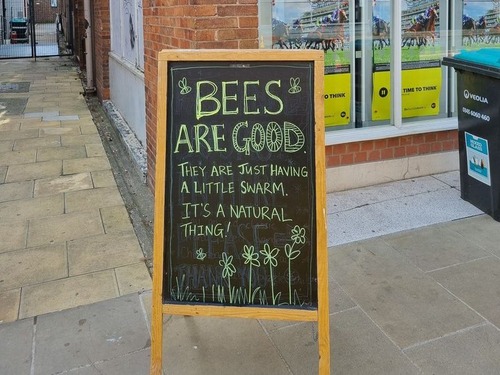 BEES
ARE GOOD.
THEY ARE JUST HAVING
A LITTLE SWARM.
IT'S A NATURAL
THING!
TO THINK
TIME TO THINK
VEOLIA